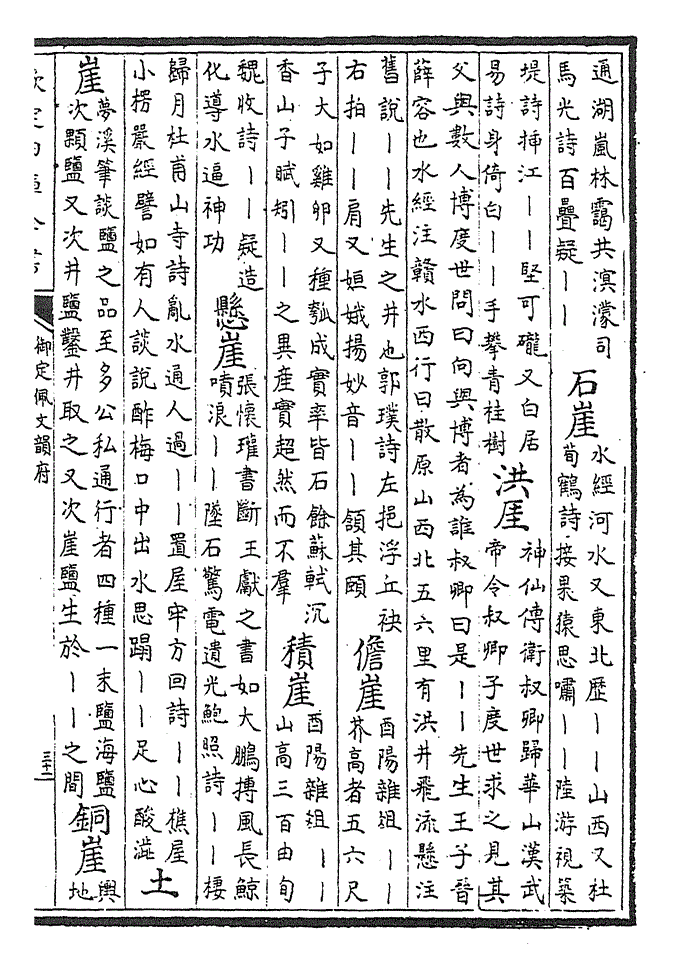 通湖嵐林靄共溟濛司
馬光詩百疊疑｜｜
石崖
水經河水又東北歷｜｜山西又杜
荀鶴詩接果猿思嘯｜｜陸游視築
堤詩揷江｜｜堅可礲又白居
易詩身倚白｜｜手攀青桂樹
洪厓
神仙傳衛叔卿歸華山漢武
帝令叔卿子度世求之見其
父與數人博度世問曰向與博者為誰叔卿曰是｜｜先生王子晉
薛容也水經注贛水西行曰散原山西北五六里有洪井飛流懸注
舊說｜｜先生之井也郭璞詩左挹浮丘袂
右拍｜｜肩又姮娥揚妙音｜｜頷其頤
儋崖
酉陽雜俎｜｜
芥高者五六尺
子大如雞卵又種瓠成實率皆石餘蘇軾沉
香山子賦矧｜｜之異產實超然而不羣
積崖
酉陽雜俎｜｜
山高三百由旬
魏收詩｜｜疑造
化導水逼神功
懸崖
張懷瓘書斷王獻之書如大鵬搏風長鯨
噴浪｜｜墜石驚電遺光鮑照詩｜｜棲
歸月杜甫山寺詩亂水通人過｜｜置屋牢方回詩｜｜樵屋
小楞嚴經譬如有人談說酢梅口中出水思蹋｜｜足心酸澁
土
崖
夢溪筆談鹽之品至多公私通行者四種一末鹽海鹽
次顆鹽又次井鹽鑿井取之又次崖鹽生於｜｜之間
銅崖
輿
地
欽定四庫全書
御定佩文韻府
三十二